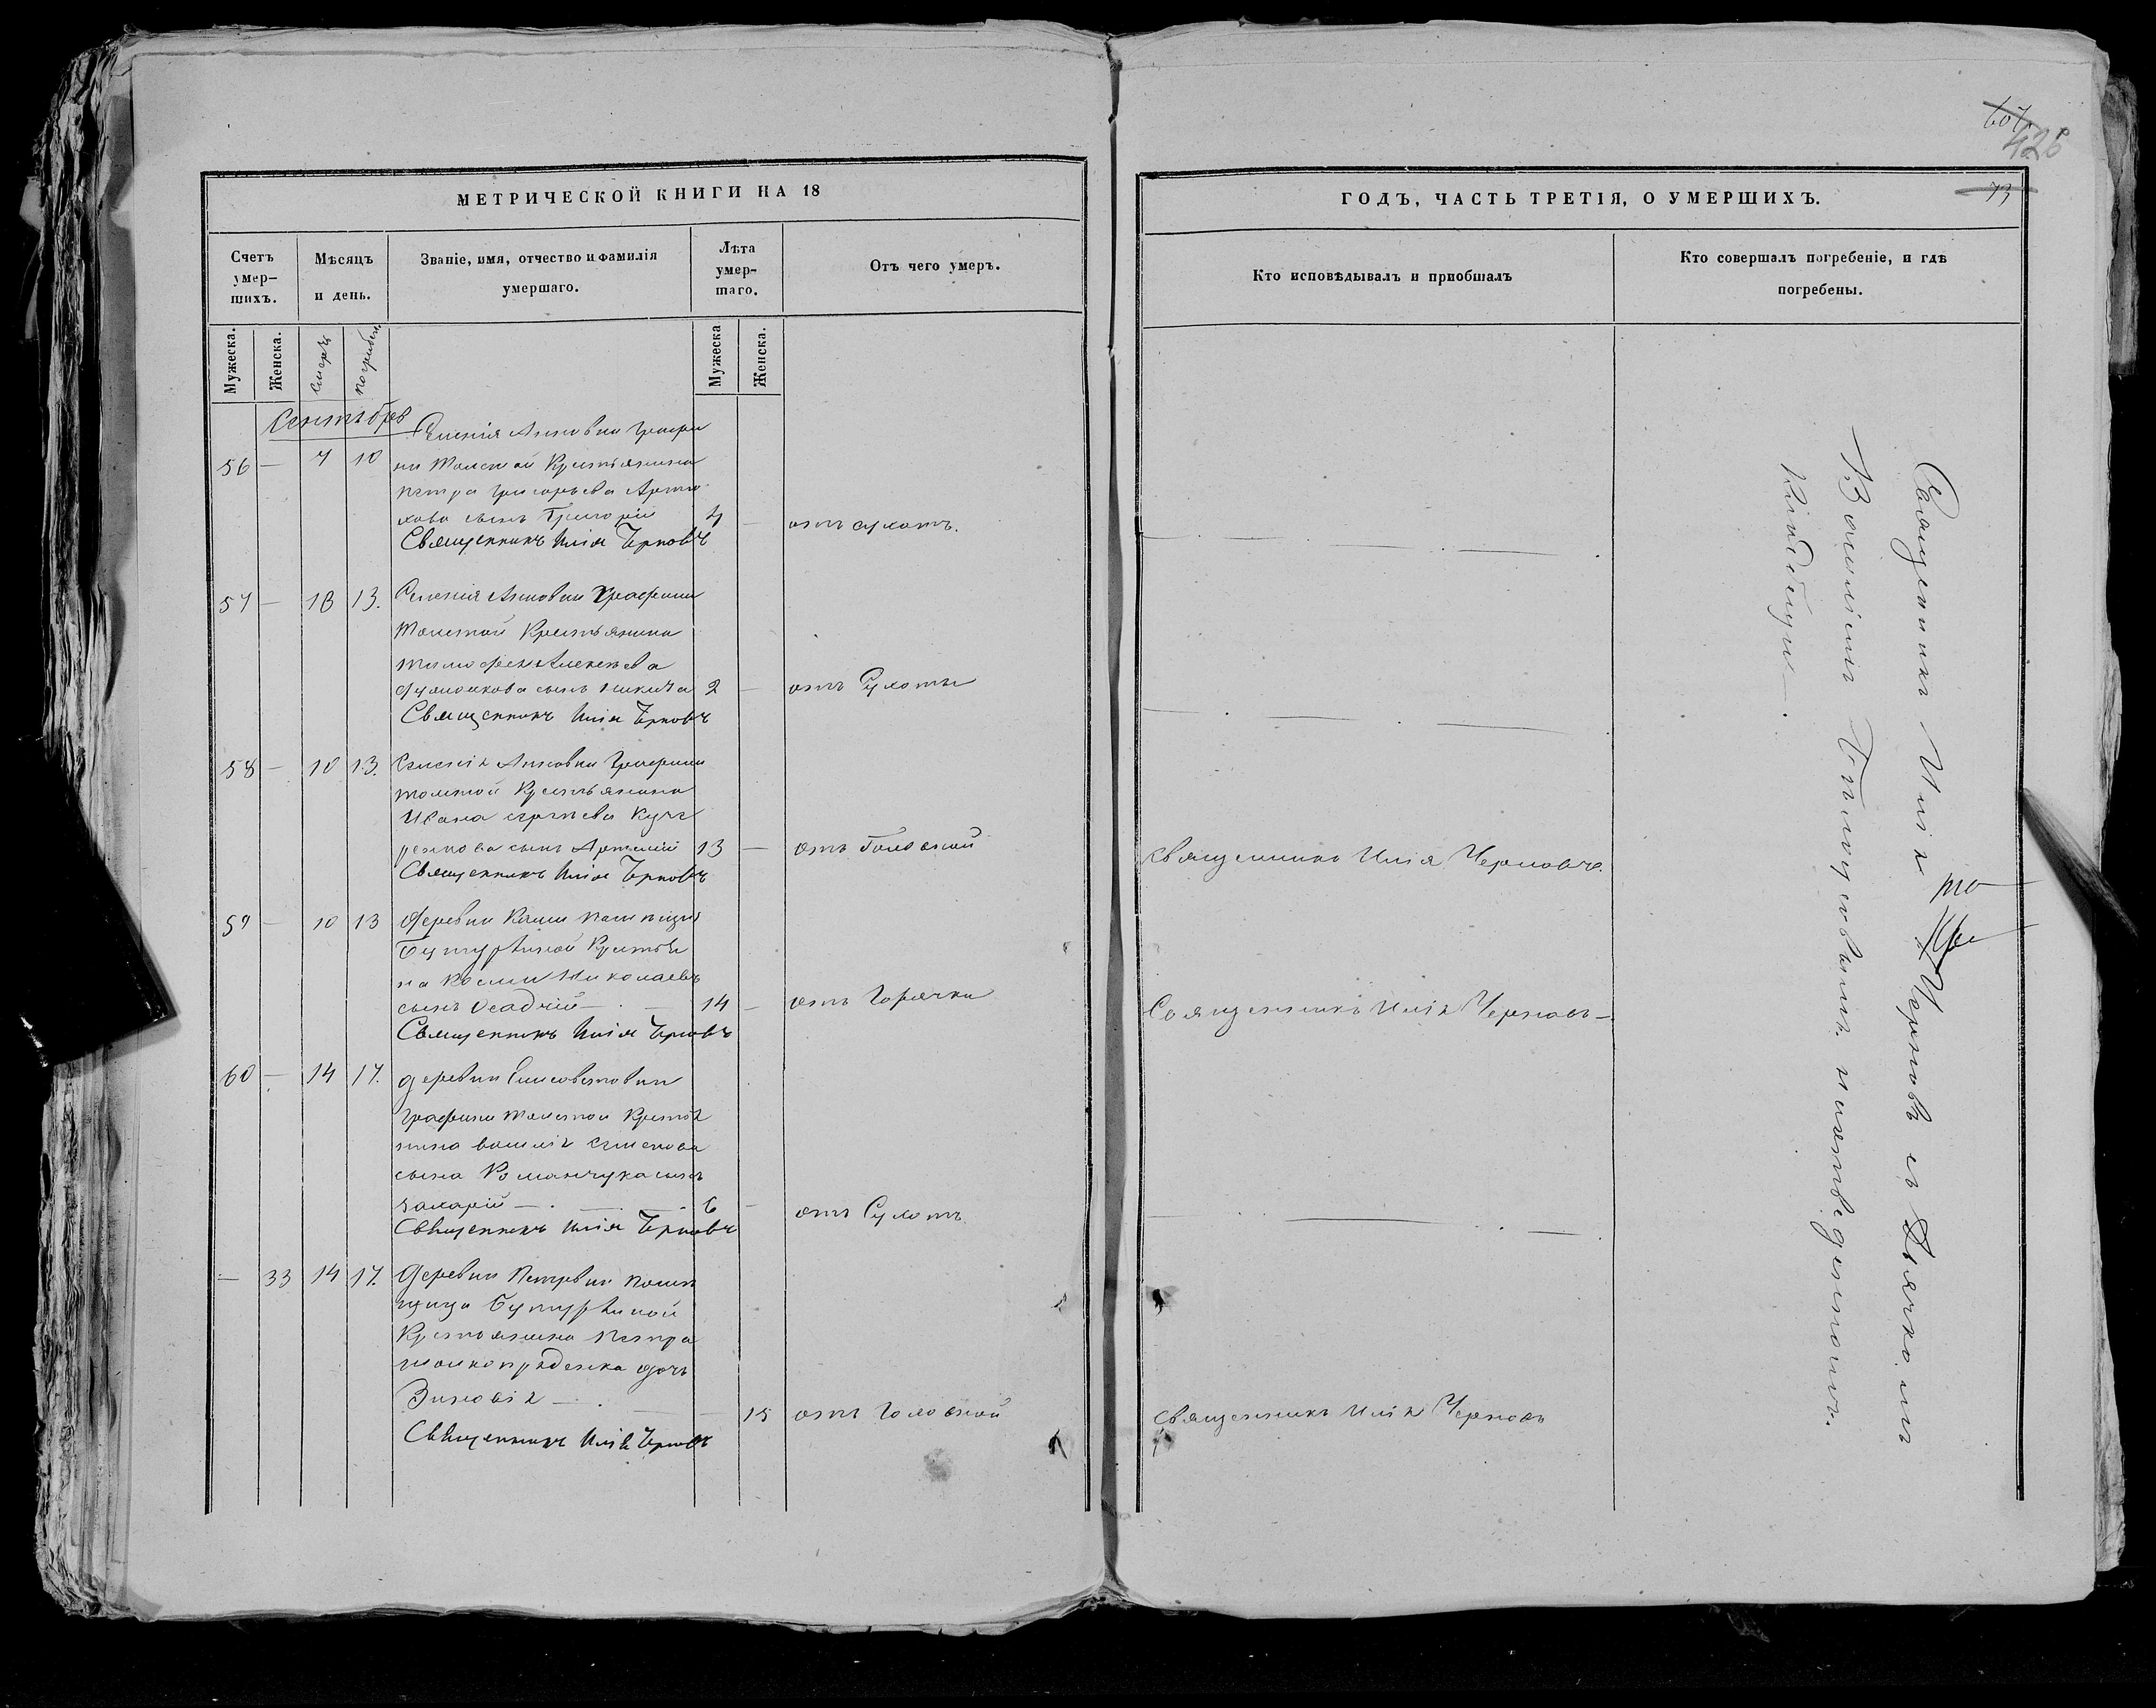 МЕТРИЧЕСКОЙ КНИГИ НА 18
Счетъ умер-шихъ.
Мѣсяцъ и день.
Званіе, имя, отчество и фамилія умершаго.
Лѣта умер-шаго.
Отъ чего умеръ.
Мужеска.
Женска.
Смерт.
погребен.
Мужеска
Женска.
Сентябрь
Селенія Анновки Графи
56 — 7 10 ни Толстой Крестьянина
Петра Григорьева
сынъ Григорій 4 — отъ сухотъ.
Священникъ Илія Черновъ
57 — 10 13. Селенія Анновки Графини
Толстой Крестьянина
Тимофея Алексѣева
сынъ Никита 2 — отъ Сухоты
Священникъ Илія Черновъ
58 — 10 13. Селенія Анновки Графини
Толстой Крестьянина
Ивана Сергѣева
сынъ Артемій 13 — отъ Головной
Священникъ Илія Черновъ
59 — 10 13 Деревни помѣщицы
Бутурлиной Крестьяни
на Николаевъ
сынъ 14 — отъ Горячки
Священникъ Илія Черновъ
60 — 14 17. Деревни Елисаветовки
Графини Толстой Крестья
нина Василія Семенова
сына Романчука сынъ
Захарій — 6 — отъ Сухотъ
Священникъ Илія Черновъ
— 33 14 17. Деревни Петровки помѣ
щицы Бутурлиной
Крестьянина Петра
дочь
Зиновія — 15 отъ Головной
Священникъ Илія Черновъ
607
426
ГОДЪ, ЧАСТЬ ТРЕТІЯ, О УМЕРШИХЪ.
73
Кто исповѣдывалъ и пріобщалъ
Кто совершалъ погребеніе, и гдѣ погребены.
Священникъ Илія Черновъ.
Священникъ Илія Черновъ —
Священникъ Илія Черновъ
Священникъ Илія Черновъ съ Дьячкомъ
на отведенномъ
Кладбищи —.